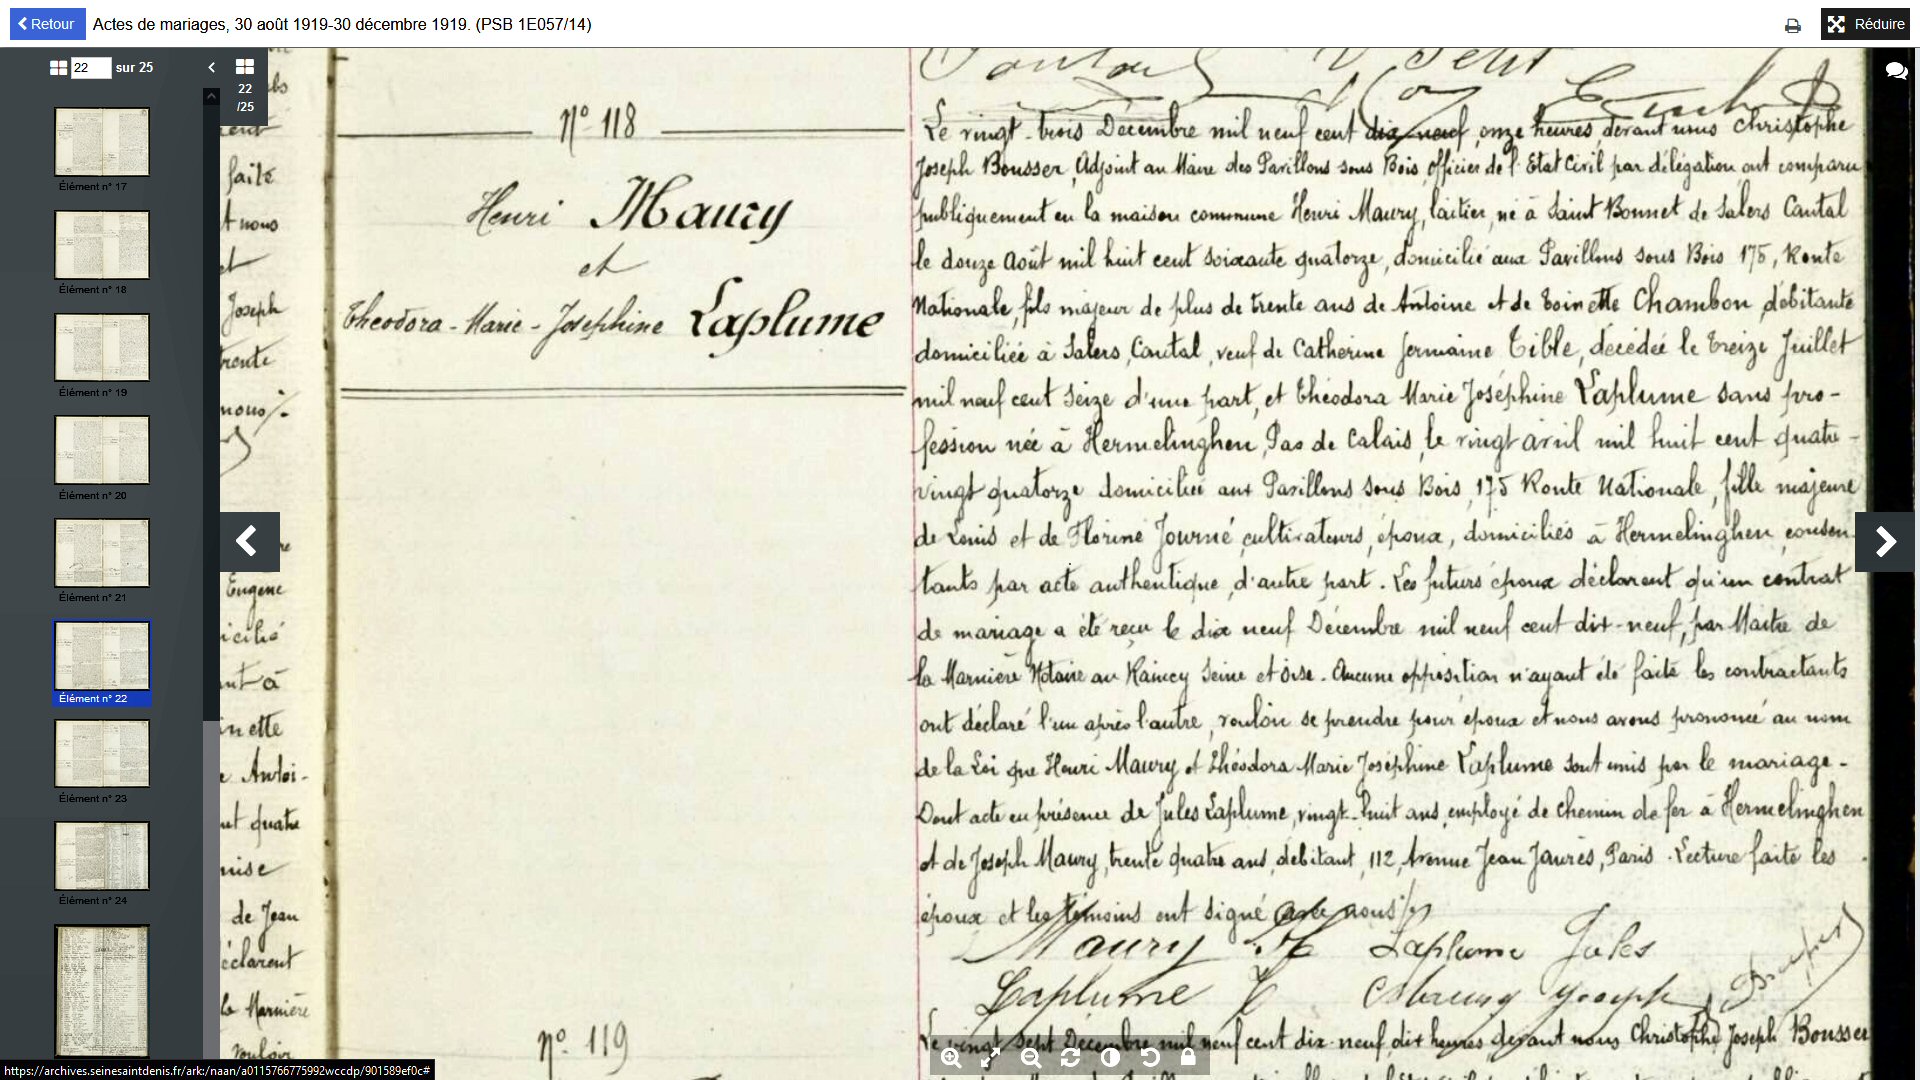 Retour
Actes de mariages, 30 août 1919-30 décembre 1919. (PSB 1E057/14)
Réduire
22 sur 25
22
/25
Élément n° 17
Élément n° 18
Élément n° 19
Élément n° 20
Élément n° 21
Élément n° 22
Élément n° 23
Élément n° 24
faite
nous
et
Joseph
trente
nous
Eugène
icilié
ant à
inette
Antoi-
nt quatre
mise
de Jean
éclarent
la Marnière
vouloir
N° 118
Henri Maury
et
Théodora-Marie-Joséphine Laplume
Le vingt-trois Décembre mil neuf cent dix-neuf, onze heures, devant nous Christophe
Joseph Bousser, Adjoint au Maire des Pavillons sous Bois, officier de l'Etat Civil par délégation ont comparu
publiquement en la maison commune Henri Maury, laitier, né à Saint Bonnet de Salers Cantal
le douze Août mil huit cent soixante quatorze, domicilié aux Pavillons sous Bois 175, Route
Nationale, fils majeur de plus de trente ans de Antoine et de Toinette Chambon, débitante
domiciliée à Salers, Cantal, veuf de Catherine Germaine Tible, décédée le treize Juillet
mil neuf cent seize d'une part, et Théodora Marie Joséphine Laplume sans pro-
fession née à Hermelinghen, Pas de Calais, le vingt avril mil huit cent quatre-
vingt quatorze domiciliée aux Pavillons sous Bois, 175 Route Nationale, fille majeure
de Louis et de Florine Journé, cultivateurs, époux, domiciliés à Hermelinghen, consen-
tants par acte authentique, d'autre part. Les futurs époux déclarent qu'un contrat
de mariage a été reçu le dix neuf Décembre mil neuf cent dix-neuf, par Maître de
la Marnière Notaire au Raincy Seine et Oise. Aucune opposition n'ayant été faite les contractants
ont déclaré l'un après l'autre, vouloir se prendre pour époux et nous avons prononcé au nom
de la Loi que Henri Maury et Théodora Marie Joséphine Laplume sont unis par le mariage.
Dont acte en présence de Jules Laplume, vingt-huit ans, employé de chemin de fer à Hermelinghen
et de Joseph Maury, trente quatre ans, débitant, 112, Avenue Jean Jaurès, Paris. Lecture faite les
époux et les témoins ont signé avec nous
Maury H Laplume Jules
Laplume T Maury Joseph
N° 119
Le vingt sept Décembre mil neuf cent dix-neuf, dix heures devant nous Christophe Joseph Bousser
https://archives.seinesaintdenis.fr/ark:/naan/a0115766775992wccdp/901589ef0c#